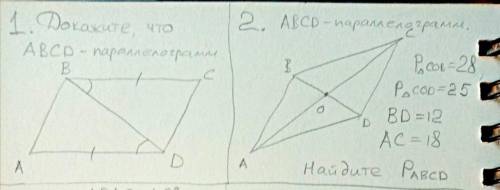 1. Докажите, что
ABCD - параллелограмм
B
C
A
D
2. ABCD - параллелограмм.
C
B
O
D
A
P△COB=28
P△COD=25
BD=12
AC=18
Найдите PABCD